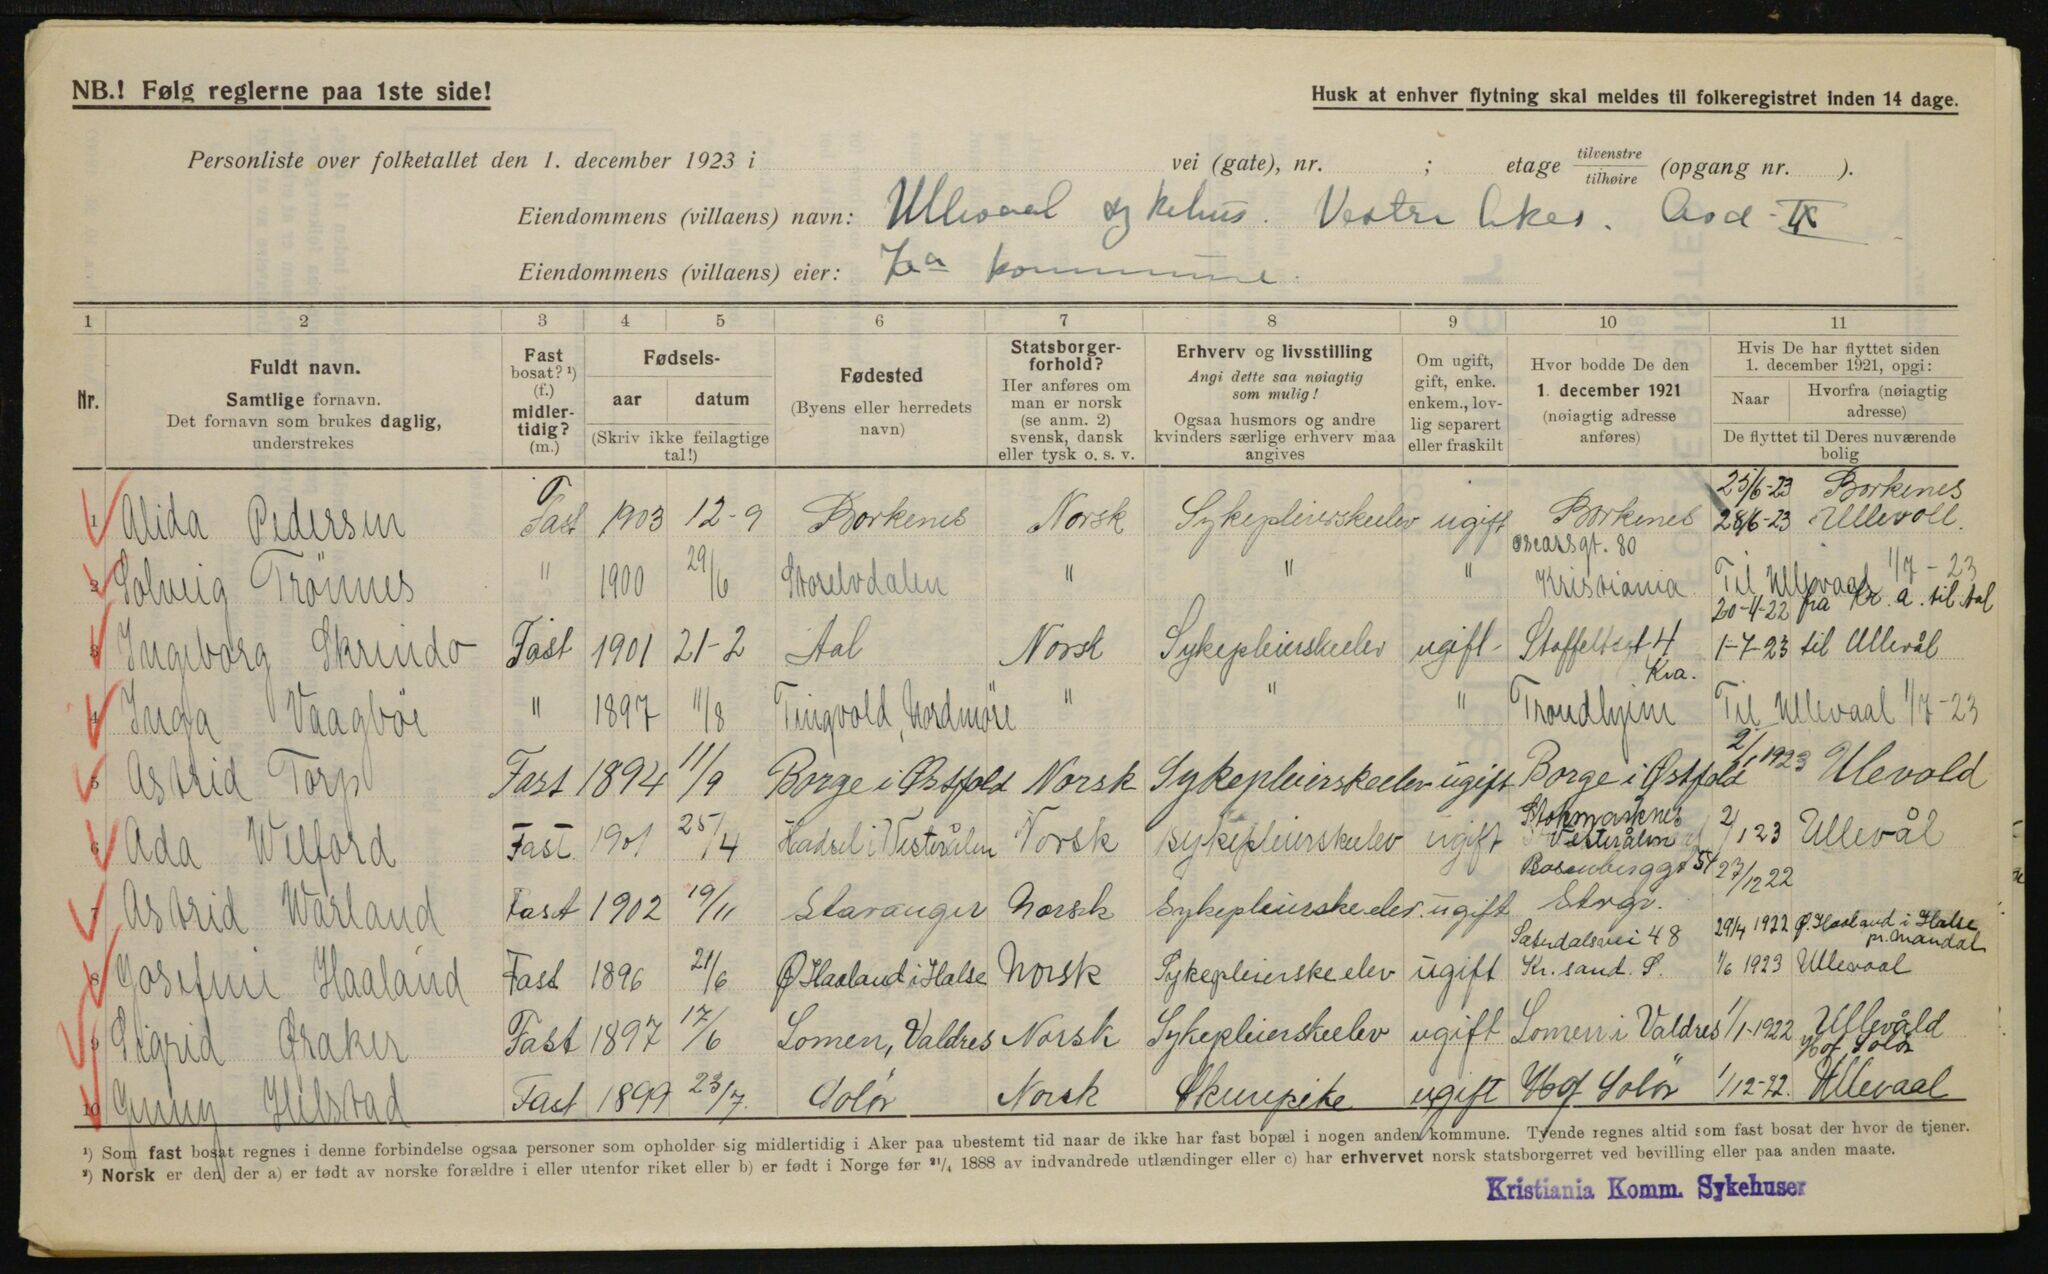 NB.! Følg reglerne paa 1ste side!
Husk at enhver flytning skal meldes til folkeregistret inden 14 dage.
Personliste over folketallet den 1. december 1923 i vei (gate), nr. ; etage tilvenstre tilhøire (opgang nr. ).
Eiendommens (villaens) navn: Ullevaal sykehus. Vestre Aker. Avd. IX
Eiendommens (villaens) eier: Kra kommune.
1 2 3 4 5 6 7 8 9 10 11
Nr.
Fuldt navn.
Samtlige fornavn.
Det fornavn som brukes daglig,
understrekes
Fast
bosat? ¹)
(f.)
midler-
tidig?
(m.)
Fødsels-
aar datum
(Skriv ikke feilagtige
tal!)
Fødested
(Byens eller herredets
navn)
Statsborger-
forhold?
Her anføres om
man er norsk
(se anm. 2)
svensk, dansk
eller tysk o. s. v.
Erhverv og livsstilling
Angi dette saa nøiagtig
som mulig!
Ogsaa husmors og andre
kvinders særlige erhverv maa
angives
Om ugift,
gift, enke.
enkem., lov-
lig separert
eller fraskilt
Hvor bodde De den
1. december 1921
(nøiagtig adresse
anføres)
Hvis De har flyttet siden
1. december 1921, opgi:
Naar
Hvorfra (nøiagtig
adresse)
De flyttet til Deres nuværende
bolig
25/6-23 Borkenes
1 Alida Pedersen Fast 1903 12-9 Borkenes Norsk Sykepleierskeelev ugift Borkenes 28/6-23 Ullevoll.
Oscarsgt. 80
2 Solveig Trönnes " 1900 29/6 Storelvdalen " " " Kristiania Til Ullevaal 1/7-23
20-4-22 fra Kr.a. til Aal
3 Ingeborg Skrindo Fast 1901 21-2 Aal Norsk Sykepleierskeelev ugift Stoffeltsgt 4 1-7-23 til Ullevål
Kra.
4 Inga Vaagböe " 1897 11/8 Tingvold, Nordmöre " " " Trondhjem Til Ullevaal 1/7-23
5 Astrid Torp Fast 1894 11/9 Borge i Østfold Norsk Sykepleierskeelev ugift Borge i Østfold 2/1 1923 Ulevold
Stokmarknes
6 Ada Welford Fast 1901 25/4 Hadsel i Vesterålen Norsk Sykepleierskeelev ugift Vesterålen 2/1 23 Ullevål
Rosenberggt 54 27/12 22
7 Astrid Warland Fast 1902 19/11 Stavanger Norsk Sykepleierskeelev. ugift Stvgr.
Sæterdalsvei 48 29/4 1922 Ø. Haaland i Halse
pr. Mandal
8 Josefine Haaland Fast 1896 21/6 Ø Haaland i Halse Norsk Sykepleierskeelev ugift Kr. sand. S. 1/6 1923 Ullevaal
9 Sigrid Øraker Fast 1897 17/6 Lomen, Valdres Norsk Sykepleierskeelev ugift Lomen i Valdres 1/1-1922 Ullevåld
Hof Solör
10 Gunny Hilstad Fast 1899 23/7. Solör Norsk Skurepike ugift Hof Solör 1/12-22. Ullevaal
¹) Som fast bosat regnes i denne forbindelse ogsaa personer som opholder sig midlertidig i Aker paa ubestemt tid naar de ikke har fast bopæl i nogen anden kommune. Tyende regnes altid som fast bosat der hvor de tjener.
²) Norsk er den, der a) er født av norske forældre i eller utenfor riket eller b) er født i Norge før 21/4 1888 av indvandrede utlændinger eller c) har erhvervet norsk statsborgerret ved bevilling eller paa anden maate.
Kristiania Komm. Sykehuser